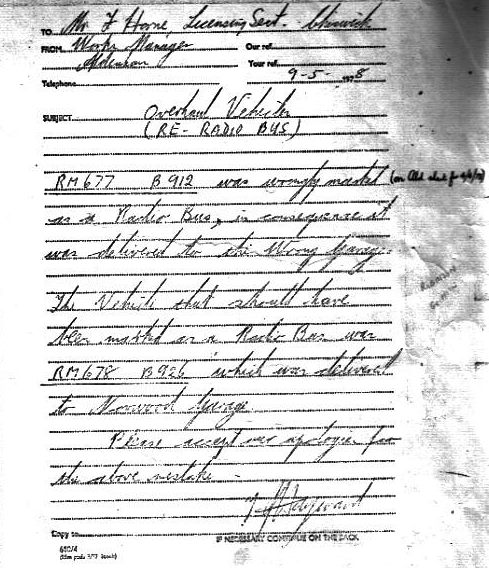 TO Mr F Horne, Licensing Sect. Chiswick
FROM Works Manager Our ref.
Aldenham Your ref.
Telephone 9-5-1978
SUBJECT Overhaul Vehicles
(RE-RADIO BUS)
RM677 B912 was wrongly marked (on
as a Radio Bus, in consequence it
was delivered to the Wrong Garage.
The Vehicle that should have
been marked as a Radio Bus was
RM678 B926 which was delivered
to Norwood Garage.
Please accept our apologies for
the above mistake.
Copy to
IF NECESSARY CONTINUE ON THE BACK